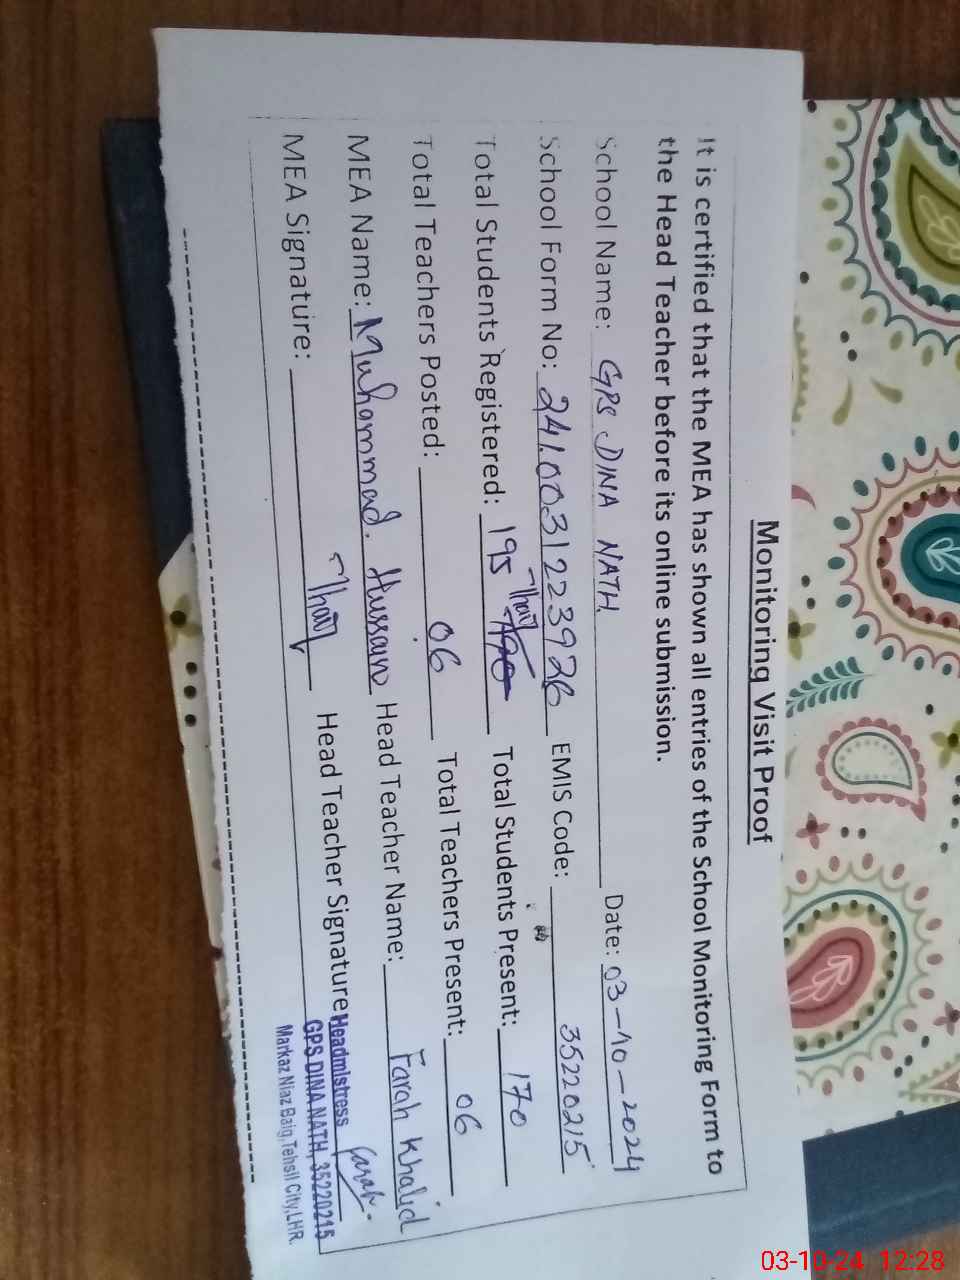 Monitoring Visit Proof
It is certified that the MEA has shown all entries of the School Monitoring Form to
the Head Teacher before its online submission.
School Name: GPS DINA NATH Date: 03-10-2024
School Form No: 2410031223926 EMIS Code: 35220215
Total Students Registered: 195 Total Students Present: 170
Total Teachers Posted: 06 Total Teachers Present: 06
MEA Name: Muhammad. Hussain Head Teacher Name: Farah Khalid
MEA Signature: Head Teacher Signature Farah.
Headmistress
GPS DINA NATH, 35220215
Markaz Niaz Baig, Tehsil City, LHR.
03-10-24 12:28